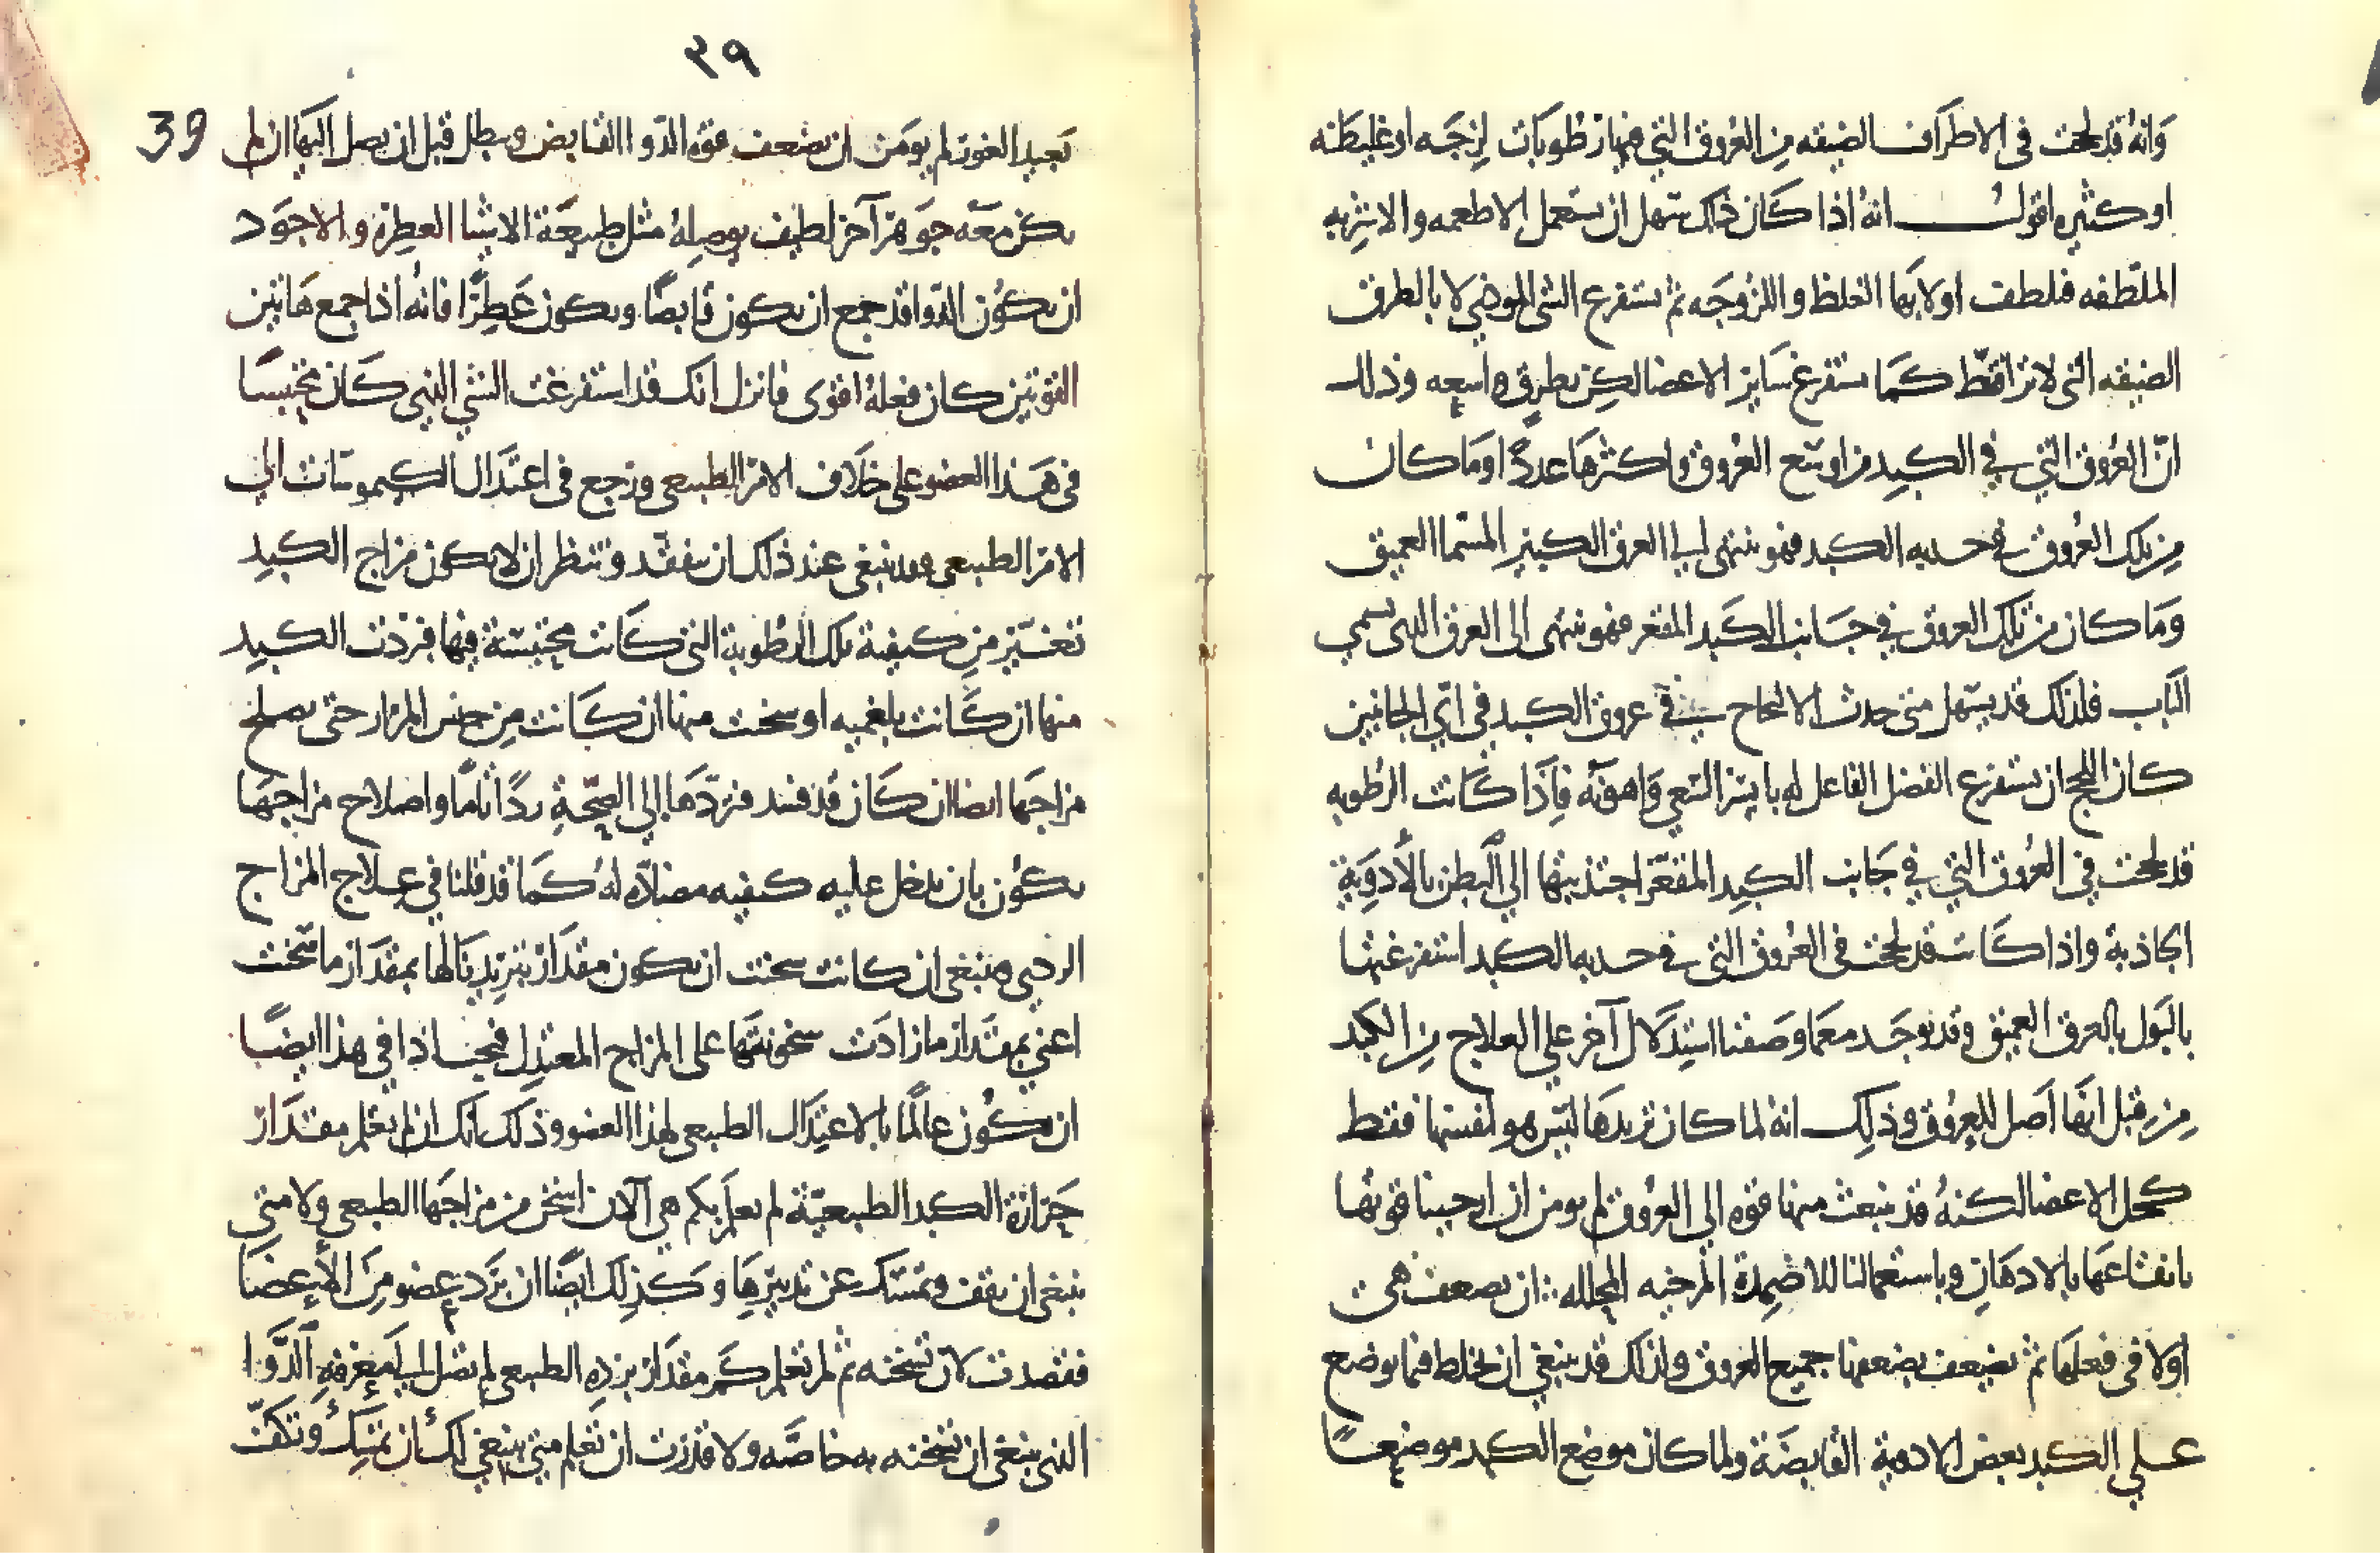 وَانهُ قد لحجت في الاطرَاف الضيقه مِن العُروق التي فيها رَطُوبَات لزجَه او غليظَه
او كثيره اقول انهُ اذا كَان ذلك سَهل ان يستعمل الاطعمه والاشربه
الملطّفه فلطفت اولا بها الغلظ واللزُوجَه ثم يستفرغ الشي الموذي لا بالطرق
الضيقه التي لا ترا قطّ كمَا يستفرغ سَاير الاعضا لكِن بطرق واسعه وذلك
انّ العُروق التي في الكبِد من اوسَع العُروق واكثرهَا عددًا ومَا كان
مِن تلك العُروق في حدبه الكبد فهو ينتهى الى العرق الكبير المسَما العميق
وَمَا كان من تلك العروق في جَانب الكَبد المقعر فهو ينتهى الى العرق الذي يسمي
البَاب فلذلك قد يسَهل متى حدث الالحاج في عروق الكبد في ايّ الجانبين
كان اللحج ان يستفرغ الفضل الفاعل له بايسَر السَعي وَاهونَه فاِذَا كَانت الرطوبه
قد لحجت في العُروق التي في جَانب الكبِد المقعّر اجتذبتها الي البَطن بالأدوِيَة
الجاذبة واذا كَانت قد لحجت في العُروق التي في حدبه الكبد استفرغتها
بالبَول بالعرق العميق وقد يوجَد معمَا وصَفنا استِدلَال آخر علي العلاج مِن الكبد
مِن قِبل انهَا اَصل للعروُق وذلِك انهُ لما كان تريدهَا ليسَ هو لنفسهَا فقط
كحل الاعضا لكنهُ قد ينبعث منها قوه الي العُروق لم يومن ان ارخينا قوتها
بانقاعهَا بالادهَانِ وباستعمالنا للاضمِدة المرخيه المحلله ان تضعف هى
اولا في فعلهَا ثم تضعف بضعفها جميع العروق ولذلك قد ينبغي ان نخلط فيما يوضع
علي الكبد بعض الادوية القابضَة ولما كان موضع الكبد موضعًا
٣٩
39
بَعيد الغور لم يومَن ان تضعف قوة الدوا القابض وتبطل قبل ان يصل اليهَا ان لم
يكن معَه جوَهر آخر لطيف يوصِلهُ مثل طبيعَة الاشيا العطِرة والاجوَد
ان يكُون الدوا قد جمع ان يكون قابضًا ويكون عَطِرًا فانهُ اذا جمع هَاتين
القوتين كان فعلهُ اقوَى فانزل انك قد استفرغت الشي الذي كَان محتبسَا
في هَذا العضو علي خلَاف الامر الطبيعي ورَجع في اعتدَال الكيموسَات الي
الامر الطبيعي فينبغي عند ذلك ان تتفقد وتنظر ان لا يكون مزاج الكبدِ
تغسّيَر مِن كيفية تلك الرطُوبة التي كَانت محتبسَة فيها فبردت الكبِد
منها ان كَانت بلغميه او سخنت منها ان كَانت مِن جنس المرَار حتى يصلح
مزاجهَا ايضا ان كَان قد فسد فردّهَا الي الصِّحّةِ ردًا تامًا واصلاح مزاجهَا
يكوُن بان يدخل عليه كيفيه مضادّه لهُ كمَا قد قلنا في علاج المزاج
الردي وينبغي ان كانت سخنت ان يكون مقدَار تبرِيدِنَا لها بمقدَار ما سَخنت
اعني بمقدَار ما زادَت سخونتهَا على المزاج المعتدِل فيجب اذا في هذا ايضًا
ان تكُون عَالمًا بالاعتِدَال الطبيعى لهذا العضو وذلَك انَك ان لم تعَلم مقدَار
حَرَارَة الكبد الطبيعيّة لم تعلَم بكم هي الآن اسخن من مزاجهَا الطبيعي ولا متي
ينبغي ان تقف وتمسَك عن تدبيرهَا وكَذلِك ايضًا ان بَرَد عضو مِنَ الأعضَا
فقصَدت لان تسَخنه ثم لم تعلم كَم مقدَار بردِه الطبيعي لم تصَل الي مَعرفةِ الدَّوا
الذي ينبغي ان تسَخنه به خاصَّه ولا قدَرت ان تعَلم متى ينبغي لك ان تمسِك وَتكفّ